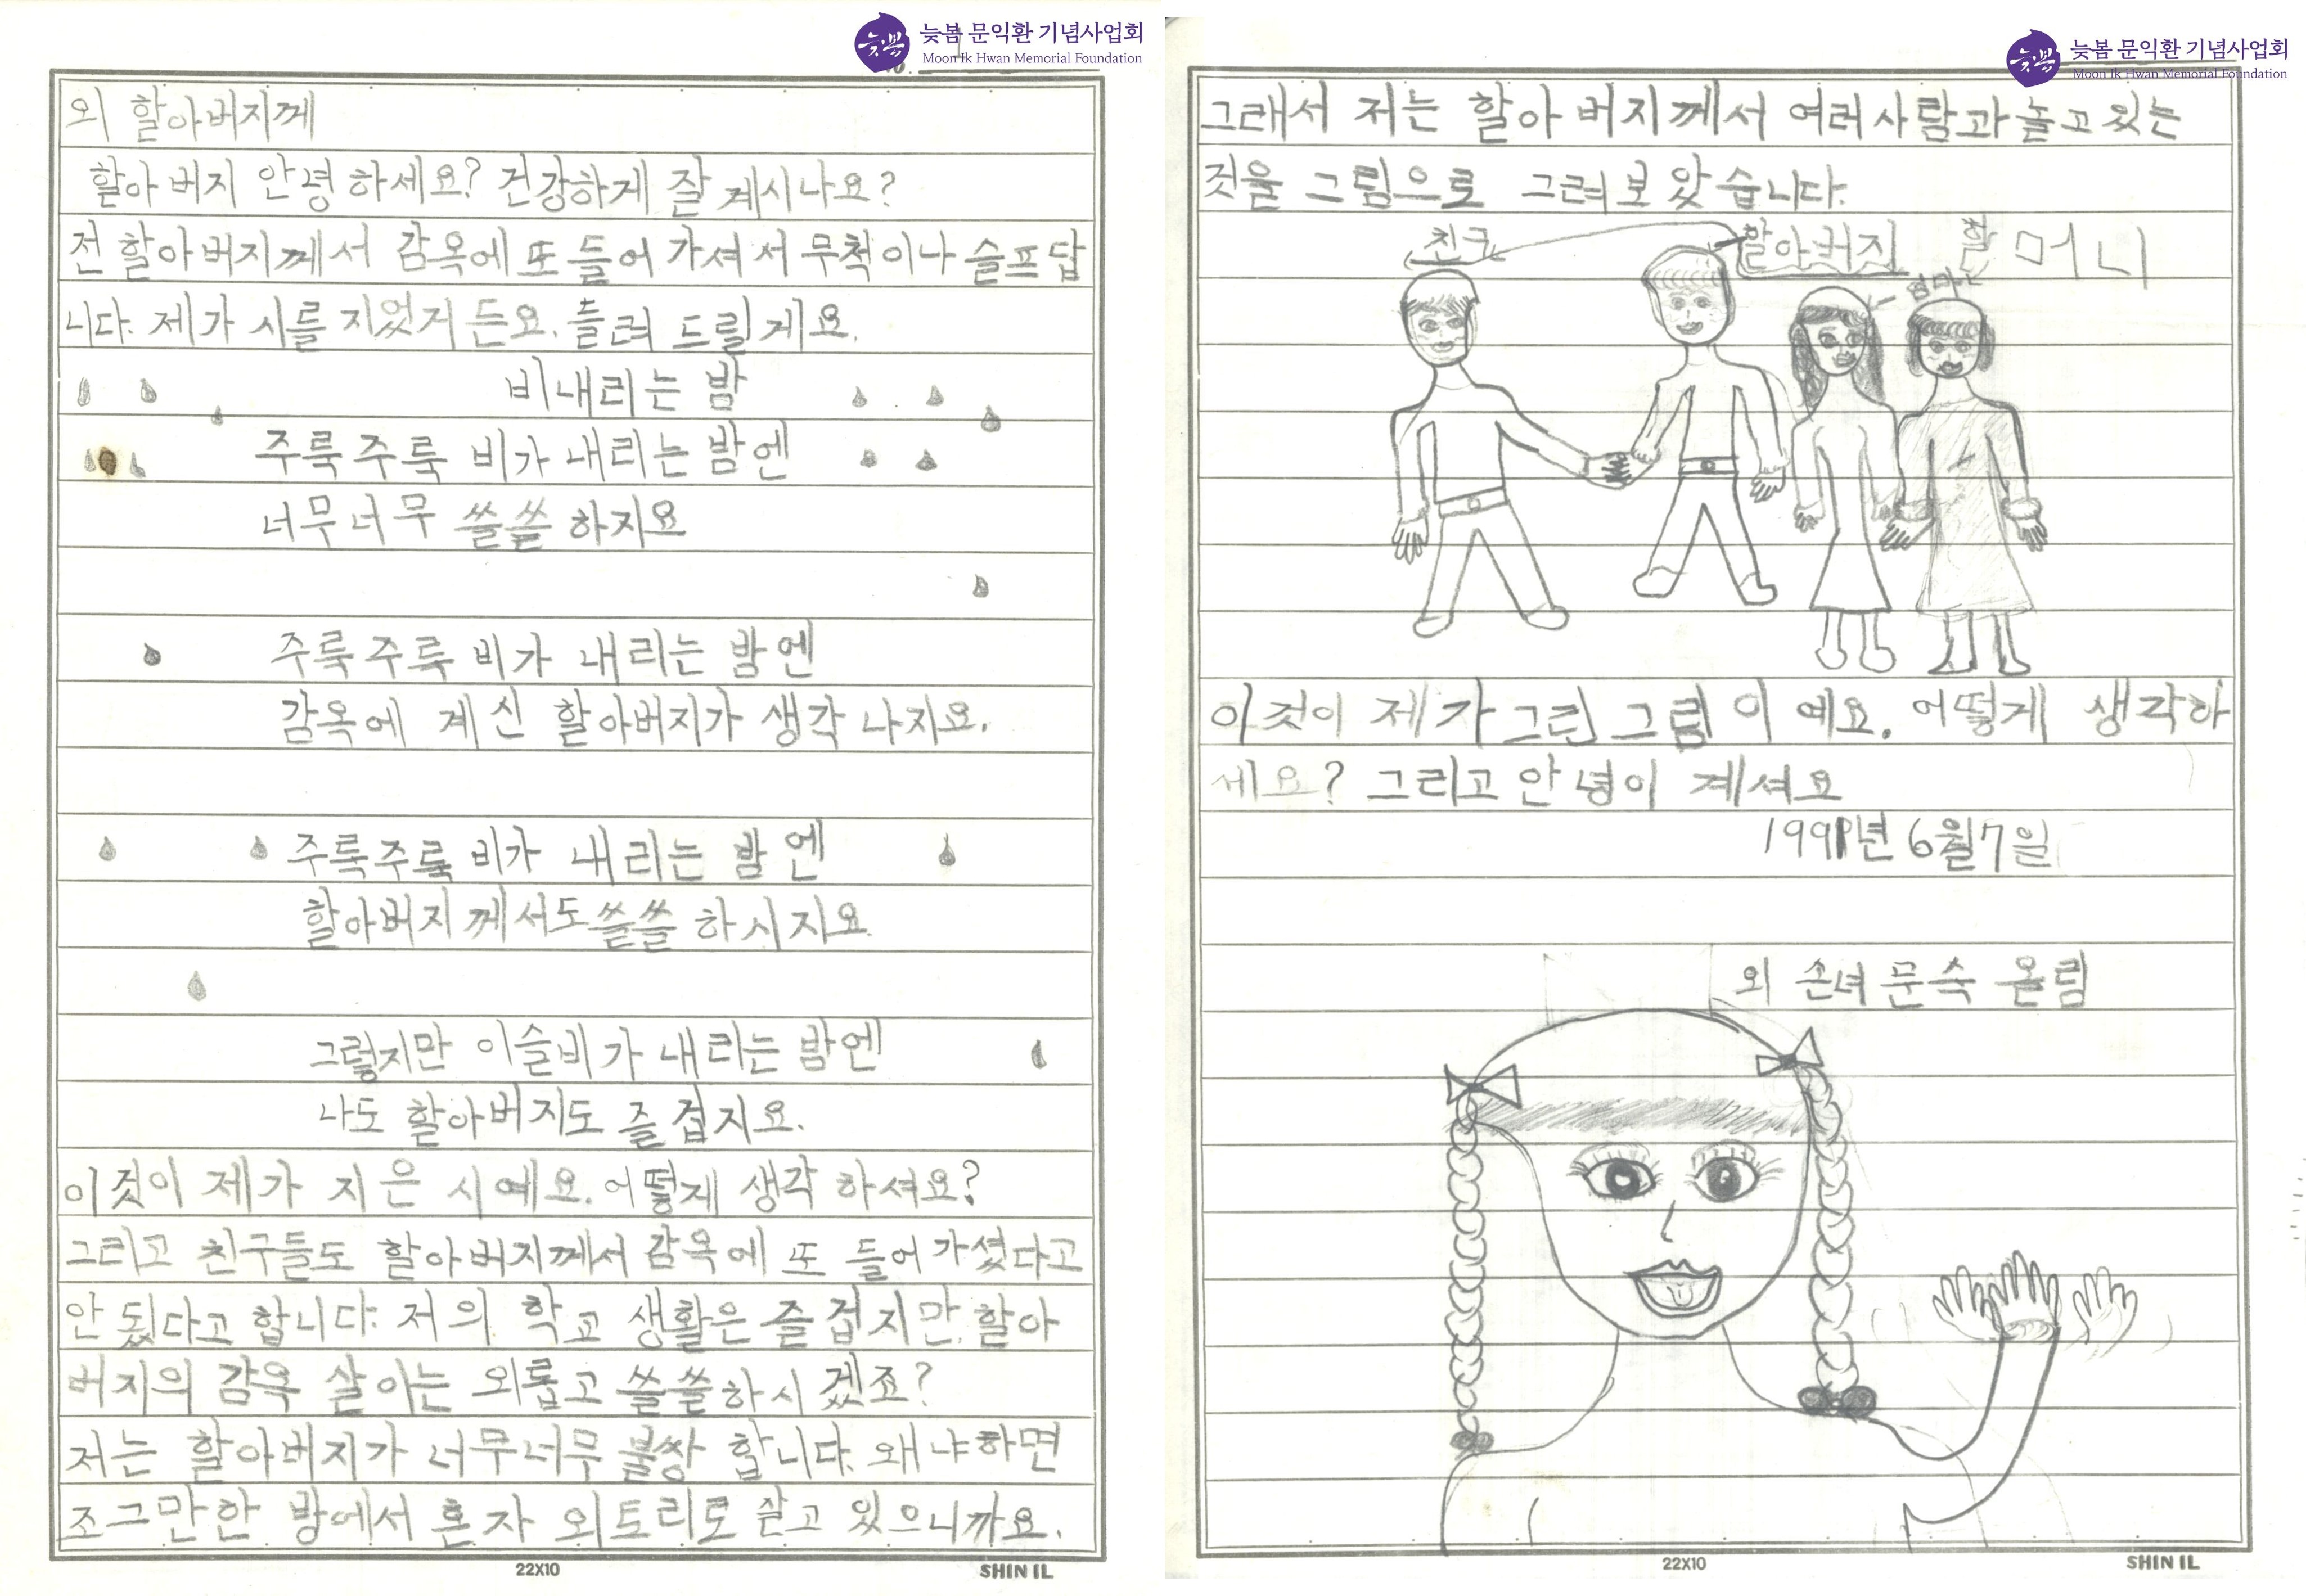 늦봄 문익환 기념사업회
Moon Ik Hwan Memorial Foundation
외 할아버지께
할아버지 안녕하세요? 건강하게 잘 계시나요?
전 할아버지께서 감옥에 또 들어 가셔서 무척이나 슬프답
니다. 제가 시를 지었거든요. 들려 드릴게요.
비내리는 밤
주룩주룩 비가 내리는 밤엔
너무너무 쓸쓸 하지요
주룩주룩 비가 내리는 밤엔
감옥에 계신 할아버지가 생각 나지요.
주룩주룩 비가 내리는 밤엔
할아버지께서도 쓸쓸 하시지요
그렇지만 이슬비가 내리는 밤엔
나도 할아버지도 즐겁지요.
이것이 제가 지은 시예요. 어떻게 생각 하셔요?
그리고 친구들도 할아버지께서 감옥에 또 들어 가셨다고
안 됬다고 합니다. 저의 학교 생활은 즐겁지만, 할아
버지의 감옥 살이는 외롭고 쓸쓸하시겠죠?
저는 할아버지가 너무너무 불쌍 합니다. 왜냐하면
조그만한 방에서 혼자 외토리로 살고 있으니까요.
22X10
SHIN IL
늦봄 문익환 기념사업회
Moon Ik Hwan Memorial Foundation
그래서 저는 할아버지께서 여러사람과 놀고있는
것을 그림으로 그려보았습니다.
친구 할아버지 할머니
엄마
이것이 제가 그린 그림이예요. 어떻게 생각하
세요? 그리고 안녕이 계셔요
1991년 6월 7일
외 손녀 문숙 올림
22X10
SHIN IL